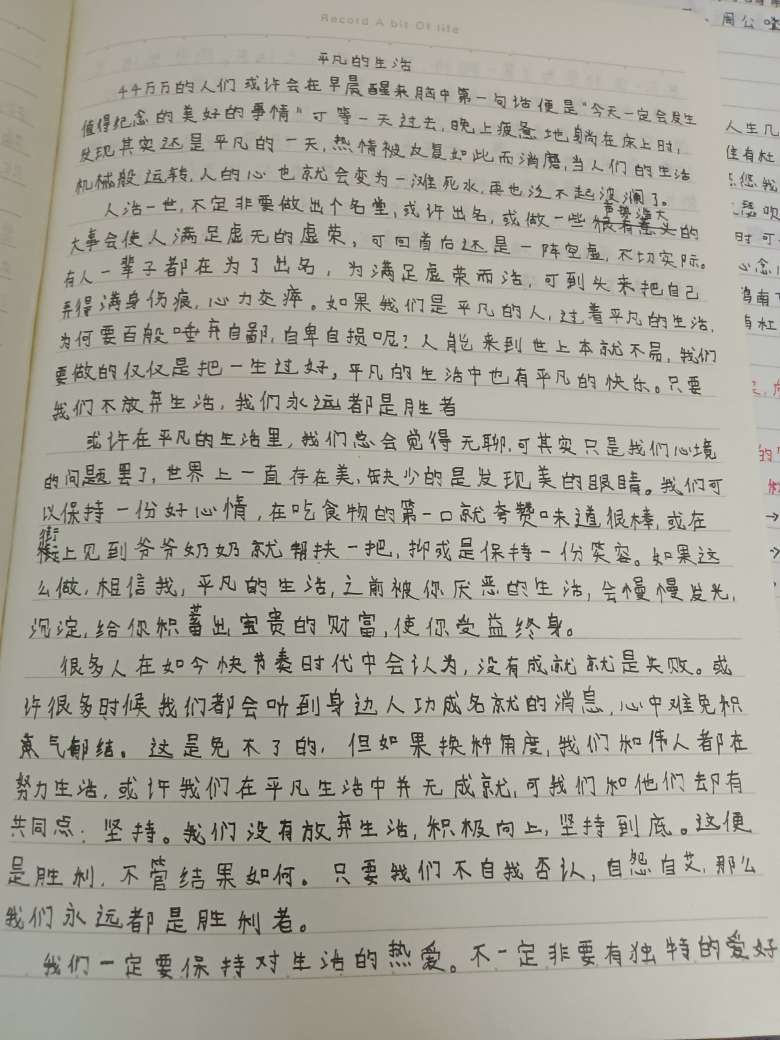 Record A bit Of life
平凡的生活
千千万万的人们或许会在早晨醒来脑中第一句话便是“今天一定会发生
值得纪念的美好的事情”可等一天过去,晚上疲惫地躺在床上时,
发现其实还是平凡的一天,热情被反复如此而消磨,当人们的生活
机械般运转,人的心也就会变为一滩死水,再也泛不起波澜了。
人活一世,不定非要做出个名堂,或许出名,或做一些声势浩大的
大事会使人满足虚无的虚荣,可回首后还是一阵空虚,不切实际。
有人一辈子都在为了出名,为满足虚荣而活,可到头来把自己
弄得满身伤痕,心力交瘁。如果我们是平凡的人,过着平凡的生活,
为何要百般唾弃自鄙,自卑自损呢?人能来到世上本就不易,我们
要做的仅仅是把一生过好,平凡的生活中也有平凡的快乐。只要
我们不放弃生活,我们永远都是胜者
或许在平凡的生活里,我们总会觉得无聊,可其实只是我们心境
的问题罢了,世界上一直存在美,缺少的是发现美的眼睛。我们可
以保持一份好心情,在吃食物的第一口就夸赞味道很棒,或在
街上见到爷爷奶奶就帮扶一把,抑或是保持一份笑容。如果这
么做,相信我,平凡的生活,之前被你厌恶的生活,会慢慢发光,
沉淀,给你积蓄出宝贵的财富,使你受益终身。
很多人在如今快节奏时代中会认为,没有成就就是失败。或
许很多时候我们都会听到身边人功成名就的消息,心中难免积
气郁结。这是免不了的,但如果换种角度,我们和伟人都在
努力生活,或许我们在平凡生活中并无成就,可我们和他们却有
共同点:坚持。我们没有放弃生活,积极向上,坚持到底。这便
是胜利,不管结果如何。只要我们不自我否认,自怨自艾,那么
我们永远都是胜利者。
我们一定要保持对生活的热爱。不一定非要有独特的爱好
周公
人生几
心念